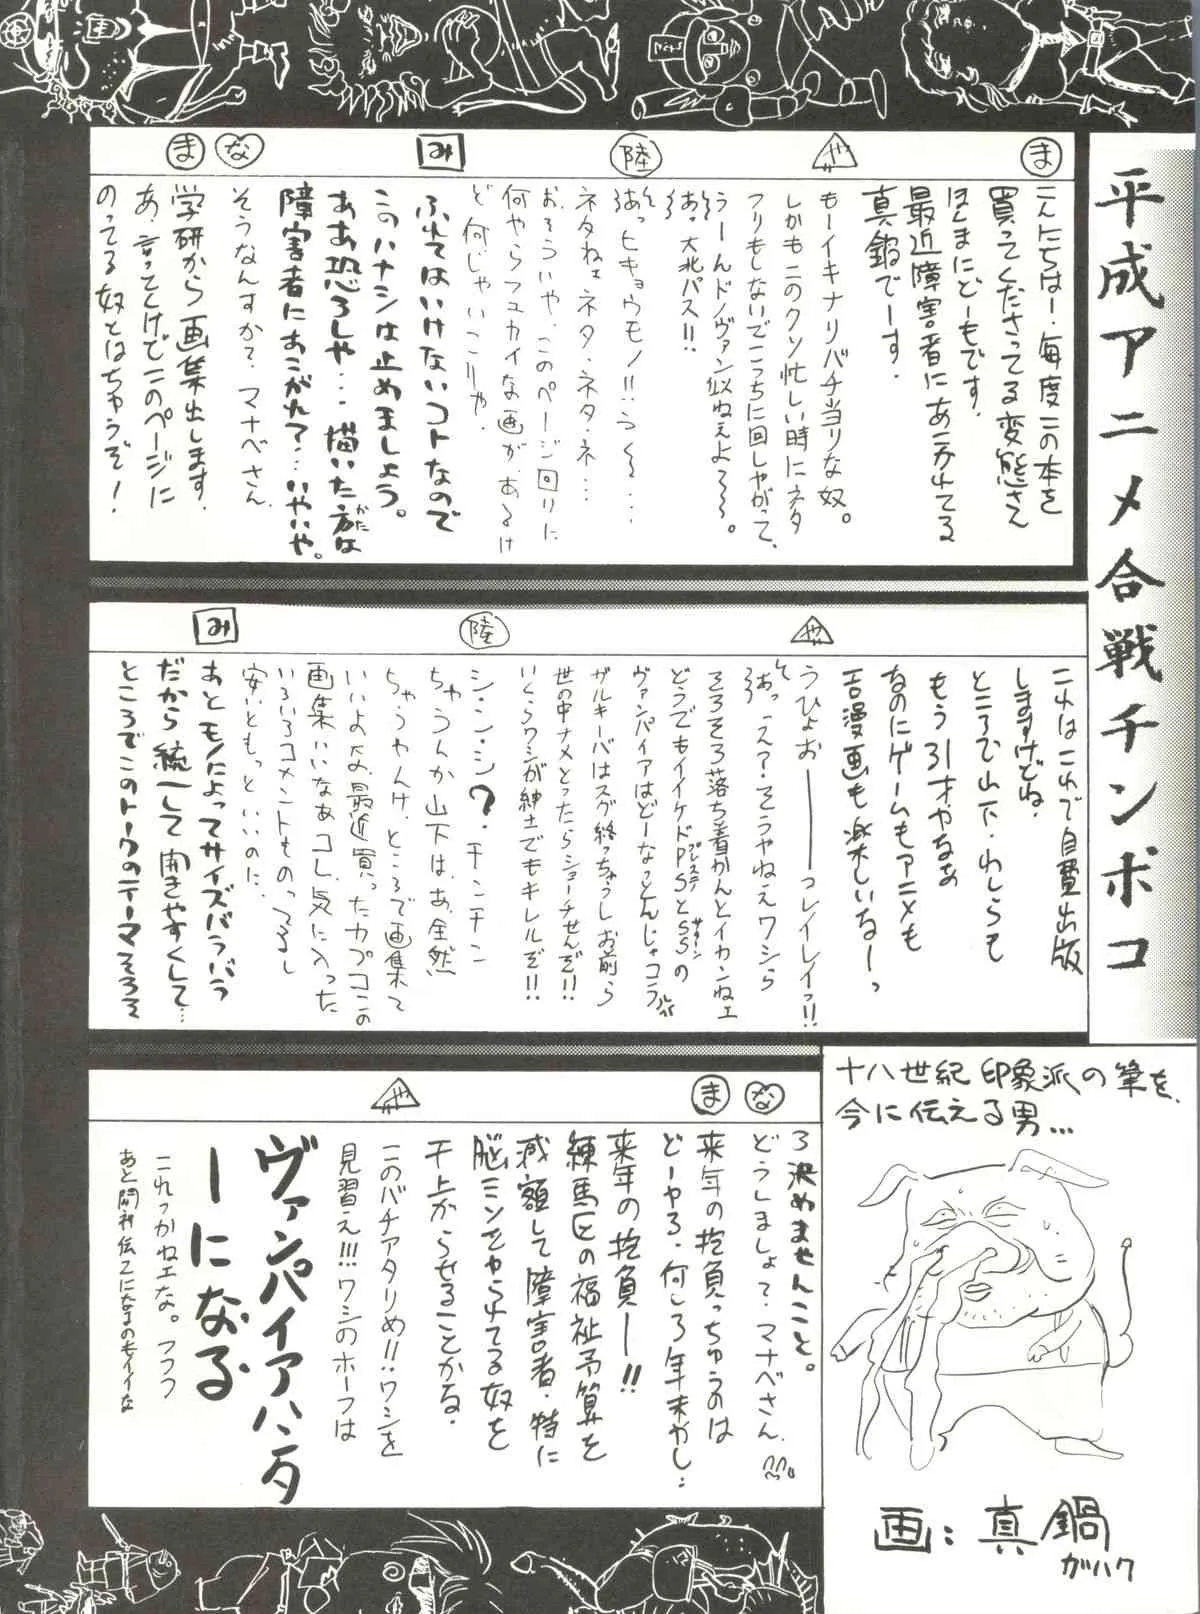 平成アニメ合戦チンポコ
ま
こんにちはー、毎度この本を
買ってくださってる変態さん
ほんまにどーもです。
最近障害者にあこがれてる
真鍋でーす。
や
もーイキナリバチ当りな奴。
しかもこのクソ忙しい時にネタ
フリもしないでこっちに回しやがって、
うーんドノヴァン似ねぇよ〜〜。
あっ大北パス!!
陸
あっヒキョウモノ!!うく〜…
ネタねェネタ・ネタ・ネ…
お、そういや、このページ回りに
何やらフユカイな画が、あるけ
ど何じゃいこりゃ。
み
ふれてはいけないコトなので
このハナシは止めましょう。
ああ恐ろしや…描いた方は
障害者にあこがれて…いやいや。
な
そうなんすか?マナベさん
ま
学研から画集出します。
あ、言っとくけどこのページに
のってる奴とはちゃうぞ!
これはこれで自費出版
しますけどね。
ところで山下、わしらも
もう31才やなぁ
なのにゲームもアニメも
エロ漫画も楽しいなーっ
や
うひょお――っレイレイっ!!
はぁっえ?そうやねえワシら
そろそろ落ち着かんとイカンねェ
どうでもイイケドPSとSSの
プレステ
サターン
ヴァンパイアはどーなっとんじゃコラ
ガルキーバはスグ終っちゃうしお前ら
世の中ナメとったらショーチせんぞ!!
いくらワシが紳士でもキレルぞ!!
陸
シ・ン・シ?チンチン
ちゃうんか山下は、あ、全然
ちゃうやんけ、ところで画集て
いいよなぁ、最近買ったカプコンの
画集いいなぁコレ、気に入った
いろいろコメントものってるし
安いともっといいのに、
み
あとモノによってサイズバラバラ
だから統一して開きやすくして…
ところでこのトークのテーマそろそ
ろ決めませんこと。
な
どうしましょて、マナベさん
ま
来年の抱負っちゅうのは
どーやろ、何しろ年末やし…
来年の抱負ー!!
練馬区の福祉予算を
減額して障害者・特に
脳ミソをやられてる奴を
干上がらせることかな。
や
このバチアタリめ!!ワシを
見習え!!!ワシのホーフは
ヴァンパイアハンタ
ーになる
これっかねェな。フフフ
十八世紀印象派の筆を、
今に伝える男…
画:真鍋
がハク